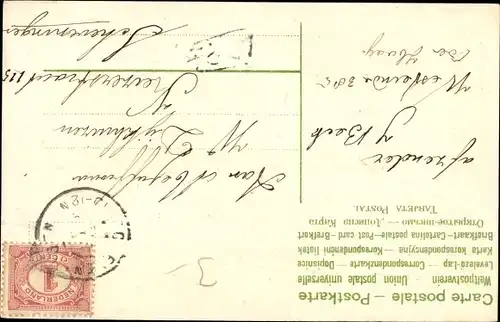 Carte postale – Postkarte
Weltpostverein — Union postale universelle
Levelezö-Lap — Correspondenzkarte — Dopisnice
Karta korespondencyjna — Korespondenční lístek
Briefkaart — Cartolina postale — Post-card — Brefkort
Открытое письмо — Дописна Карта
TARJETA POSTAL
afzender
J Beek
Westeinde 305
Den Haag
Aan
W
Keizerstraat 115
Scheveningen
NEDERLAND
1
CENT
3-